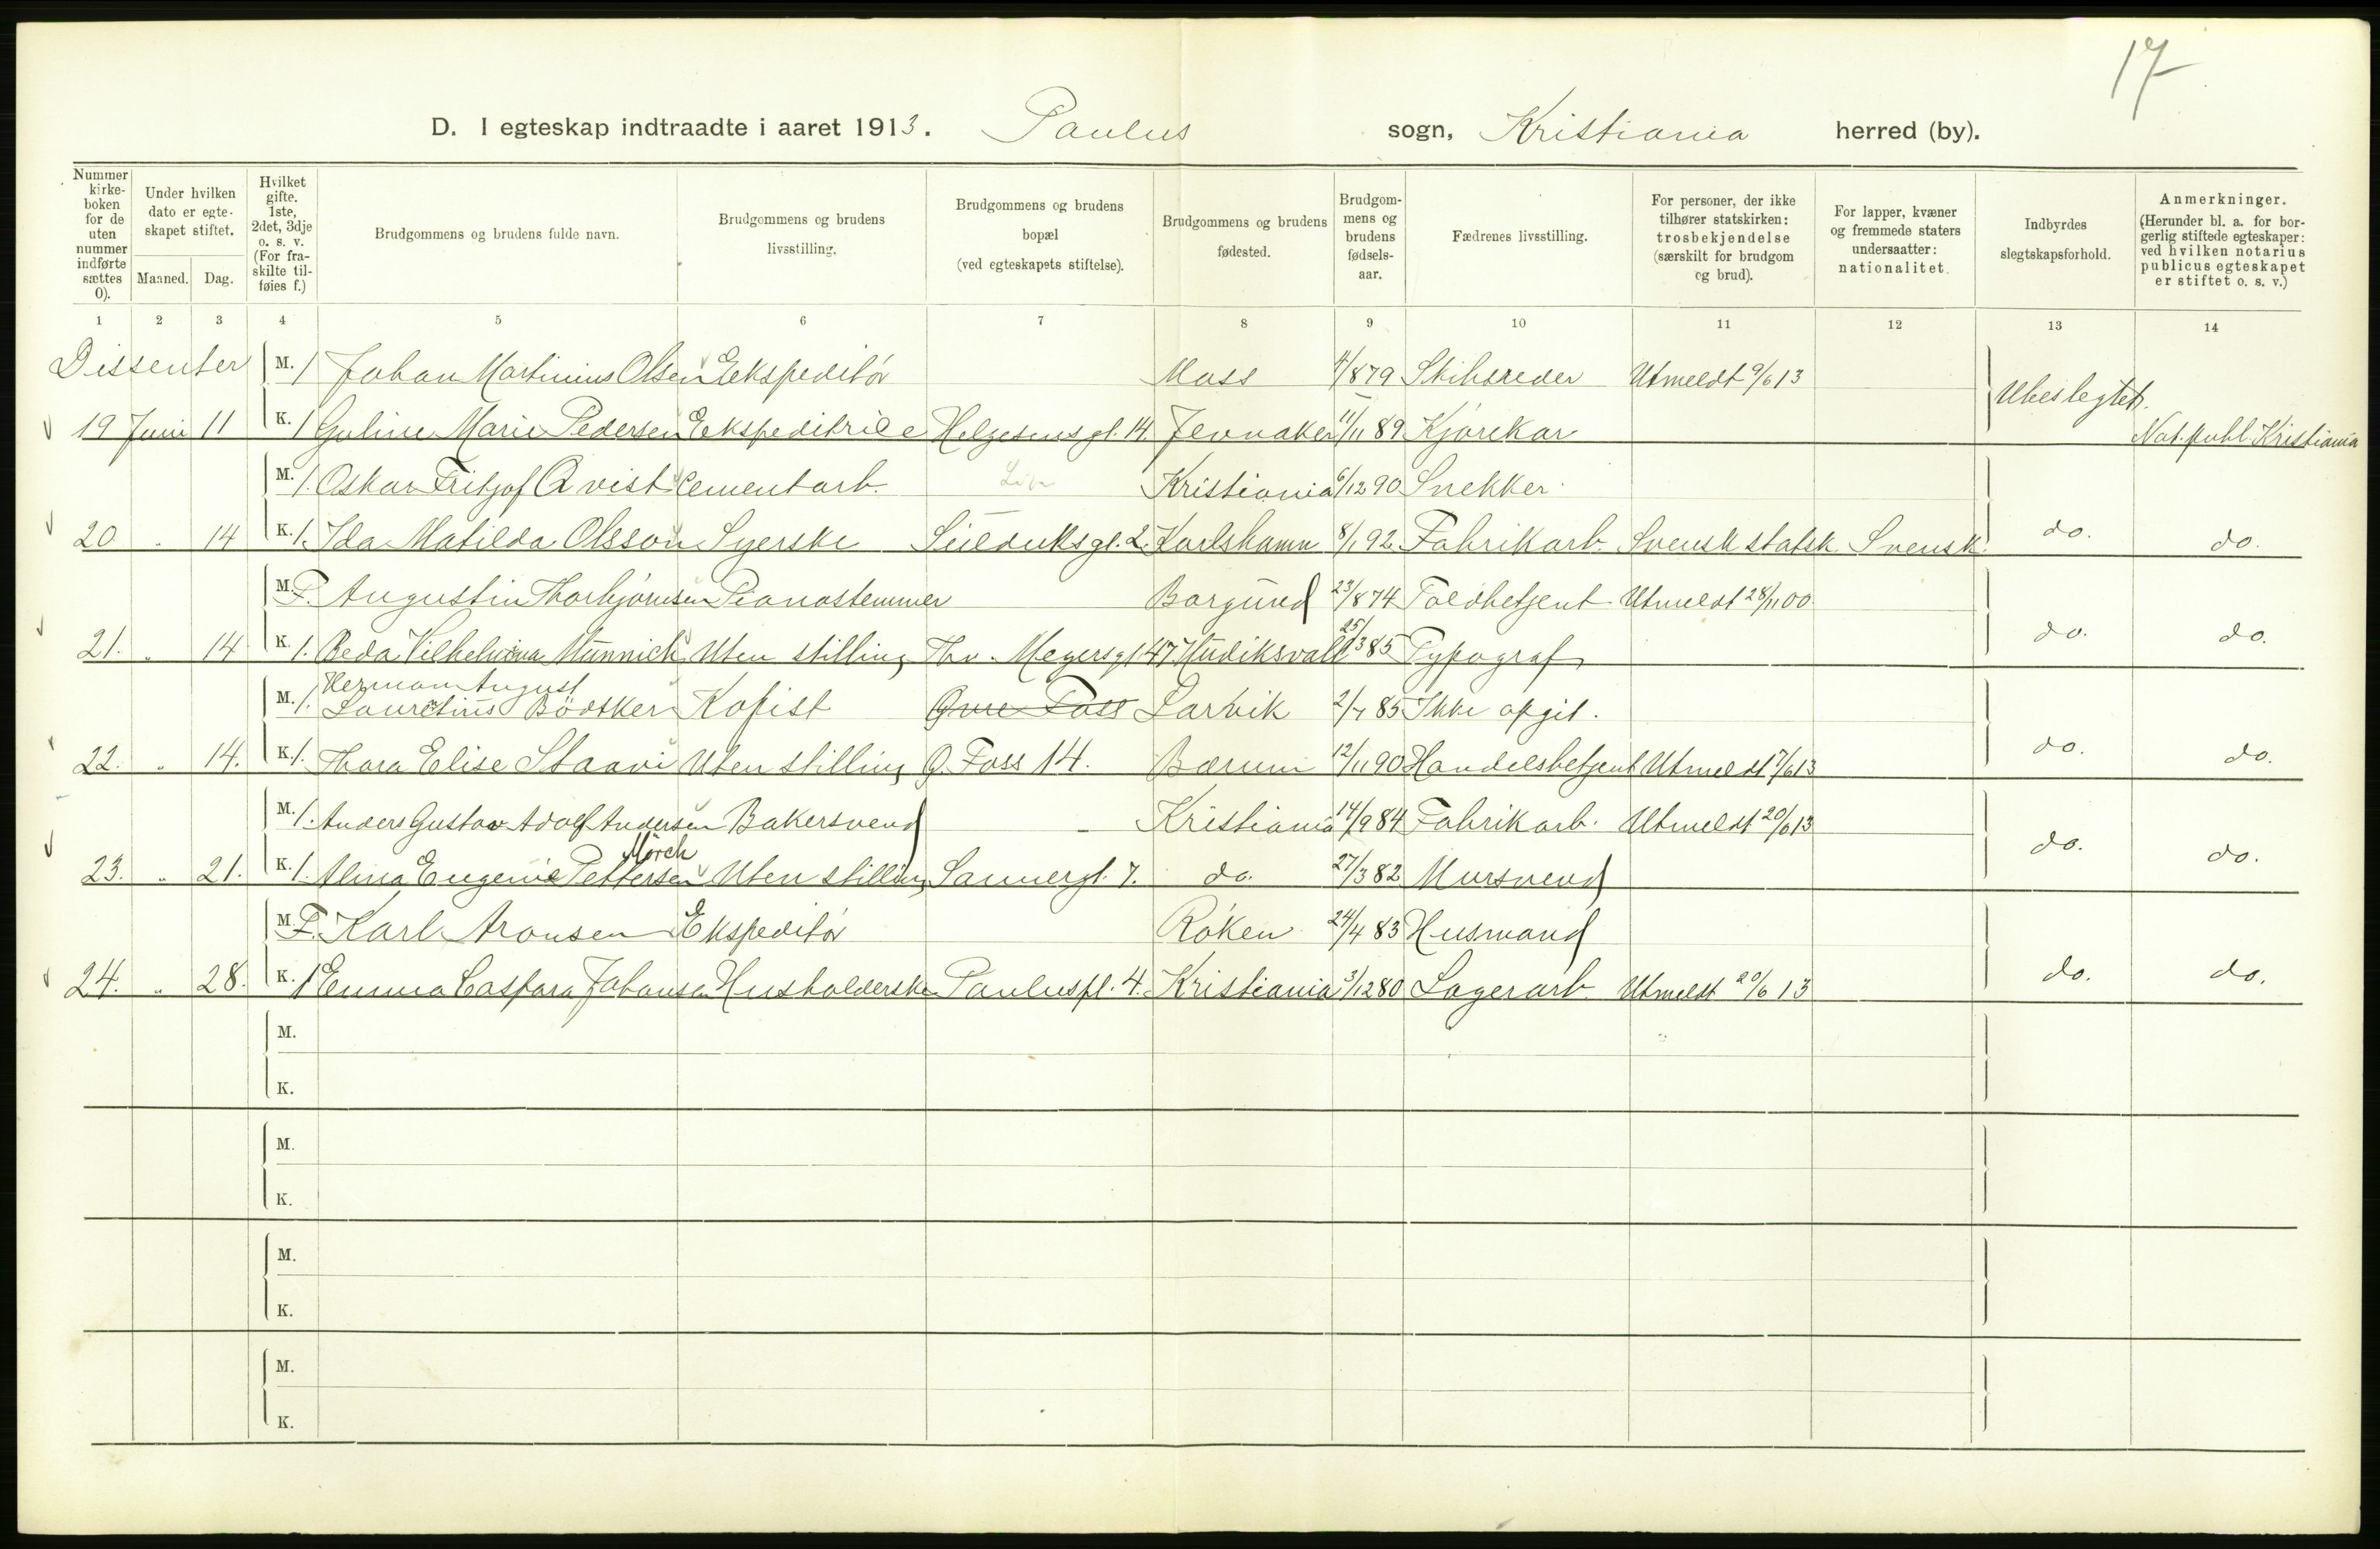 17
D. I egteskap indtraadte i aaret 1913. Paulus sogn, Kristiania herred (by).
Nummer kirke-boken for de uten nummer indførte sættes 0).
Under hvilken dato er egte-skapet stiftet.
Maaned. Dag.
Hvilket gifte. 1ste, 2det, 3dje o. s. v. (For fra-skilte til-føies f.)
Brudgommens og brudens fulde navn.
Brudgommens og brudens livsstilling.
Brudgommens og brudens bopæl (ved egteskapets stiftelse).
Brudgommens og brudens fødested.
Brudgom-mens og brudens fødsels-aar.
Fædrenes livsstilling.
For personer, der ikke tilhører statskirken: trosbekjendelse (særskilt for brudgom og brud).
For lapper, kvæner og fremmede staters undersaatter: nationalitet.
Indbyrdes slegtskapsforhold.
Anmerkninger. (Herunder bl. a. for bor-gerlig stiftede egteskaper: ved hvilken notarius publicus egteskapet er stiftet o. s. v.)
1 2 3 4 5 6 7 8 9 10 11 12 13 14
Dissenter M. 1 Johan Martinius Olsen Ekspeditör Moss 4/8 79 Skibsreder Utmeldt 9/6 13 Ubeslegtet.
19 Juni 11 K. 1 Guline Marie Pedersen Ekspeditrice Helgesens gt. 14. Jevnaker 11/11 89 Kjörekar Not. publ. Kristiania
M. 1. Oskar Fritjof Qvist Cementarb. Kristiania 6/12 90 Snekker.
20 " 14 K. 1. Ida Matilda Olsson Syerske Seilduksgt. 2. Karlshamn 8/1 92. Fabrikarb. Svensk statsk. Svensk. do. do.
M. F. Augustin Thorbjörnsen Pianostemmer Borgund 23/8 74 Toldbetjent Utmeldt 28/11 00
21. " 14 K. 1. Beda Vilhelmina Münnich Uten stilling Thv. Meyersgt 47 Hudiksvall 25/3 85 Typograf do. do.
Herman August
M. 1. Lauretius Bödtker Kopist Øvre Foss Larvik 2/7 85 Ikke opgit.
22. " 14. K. 1. Thora Elise Staavi Uten stilling Ø. Foss 14. Bærum 12/11 90 Handelsbetjent Utmeldt 7/6 13 do. do.
M. 1. Anders Gustav Adolf Andersen Bakersvend - Kristiania 14/9 84 Fabrikarb. Utmeldt 20/6 13
Mörch
23. " 21. K. 1. Alma Eugenie Pettersen Uten stilling Sannergt. 7. do. 27/3 82 Mursvend do. do.
M. F. Karl Aronsen Ekspeditör Röken 24/4 83 Husmand
24. " 28. K. 1 Emma Caspara Johansen Husholderske Pauluspl. 4. Kristiania 3/12 80 Lagerarb. Utmeldt 20/6 13 do. do.
M.
K.
M.
K.
M.
K.
M.
K.